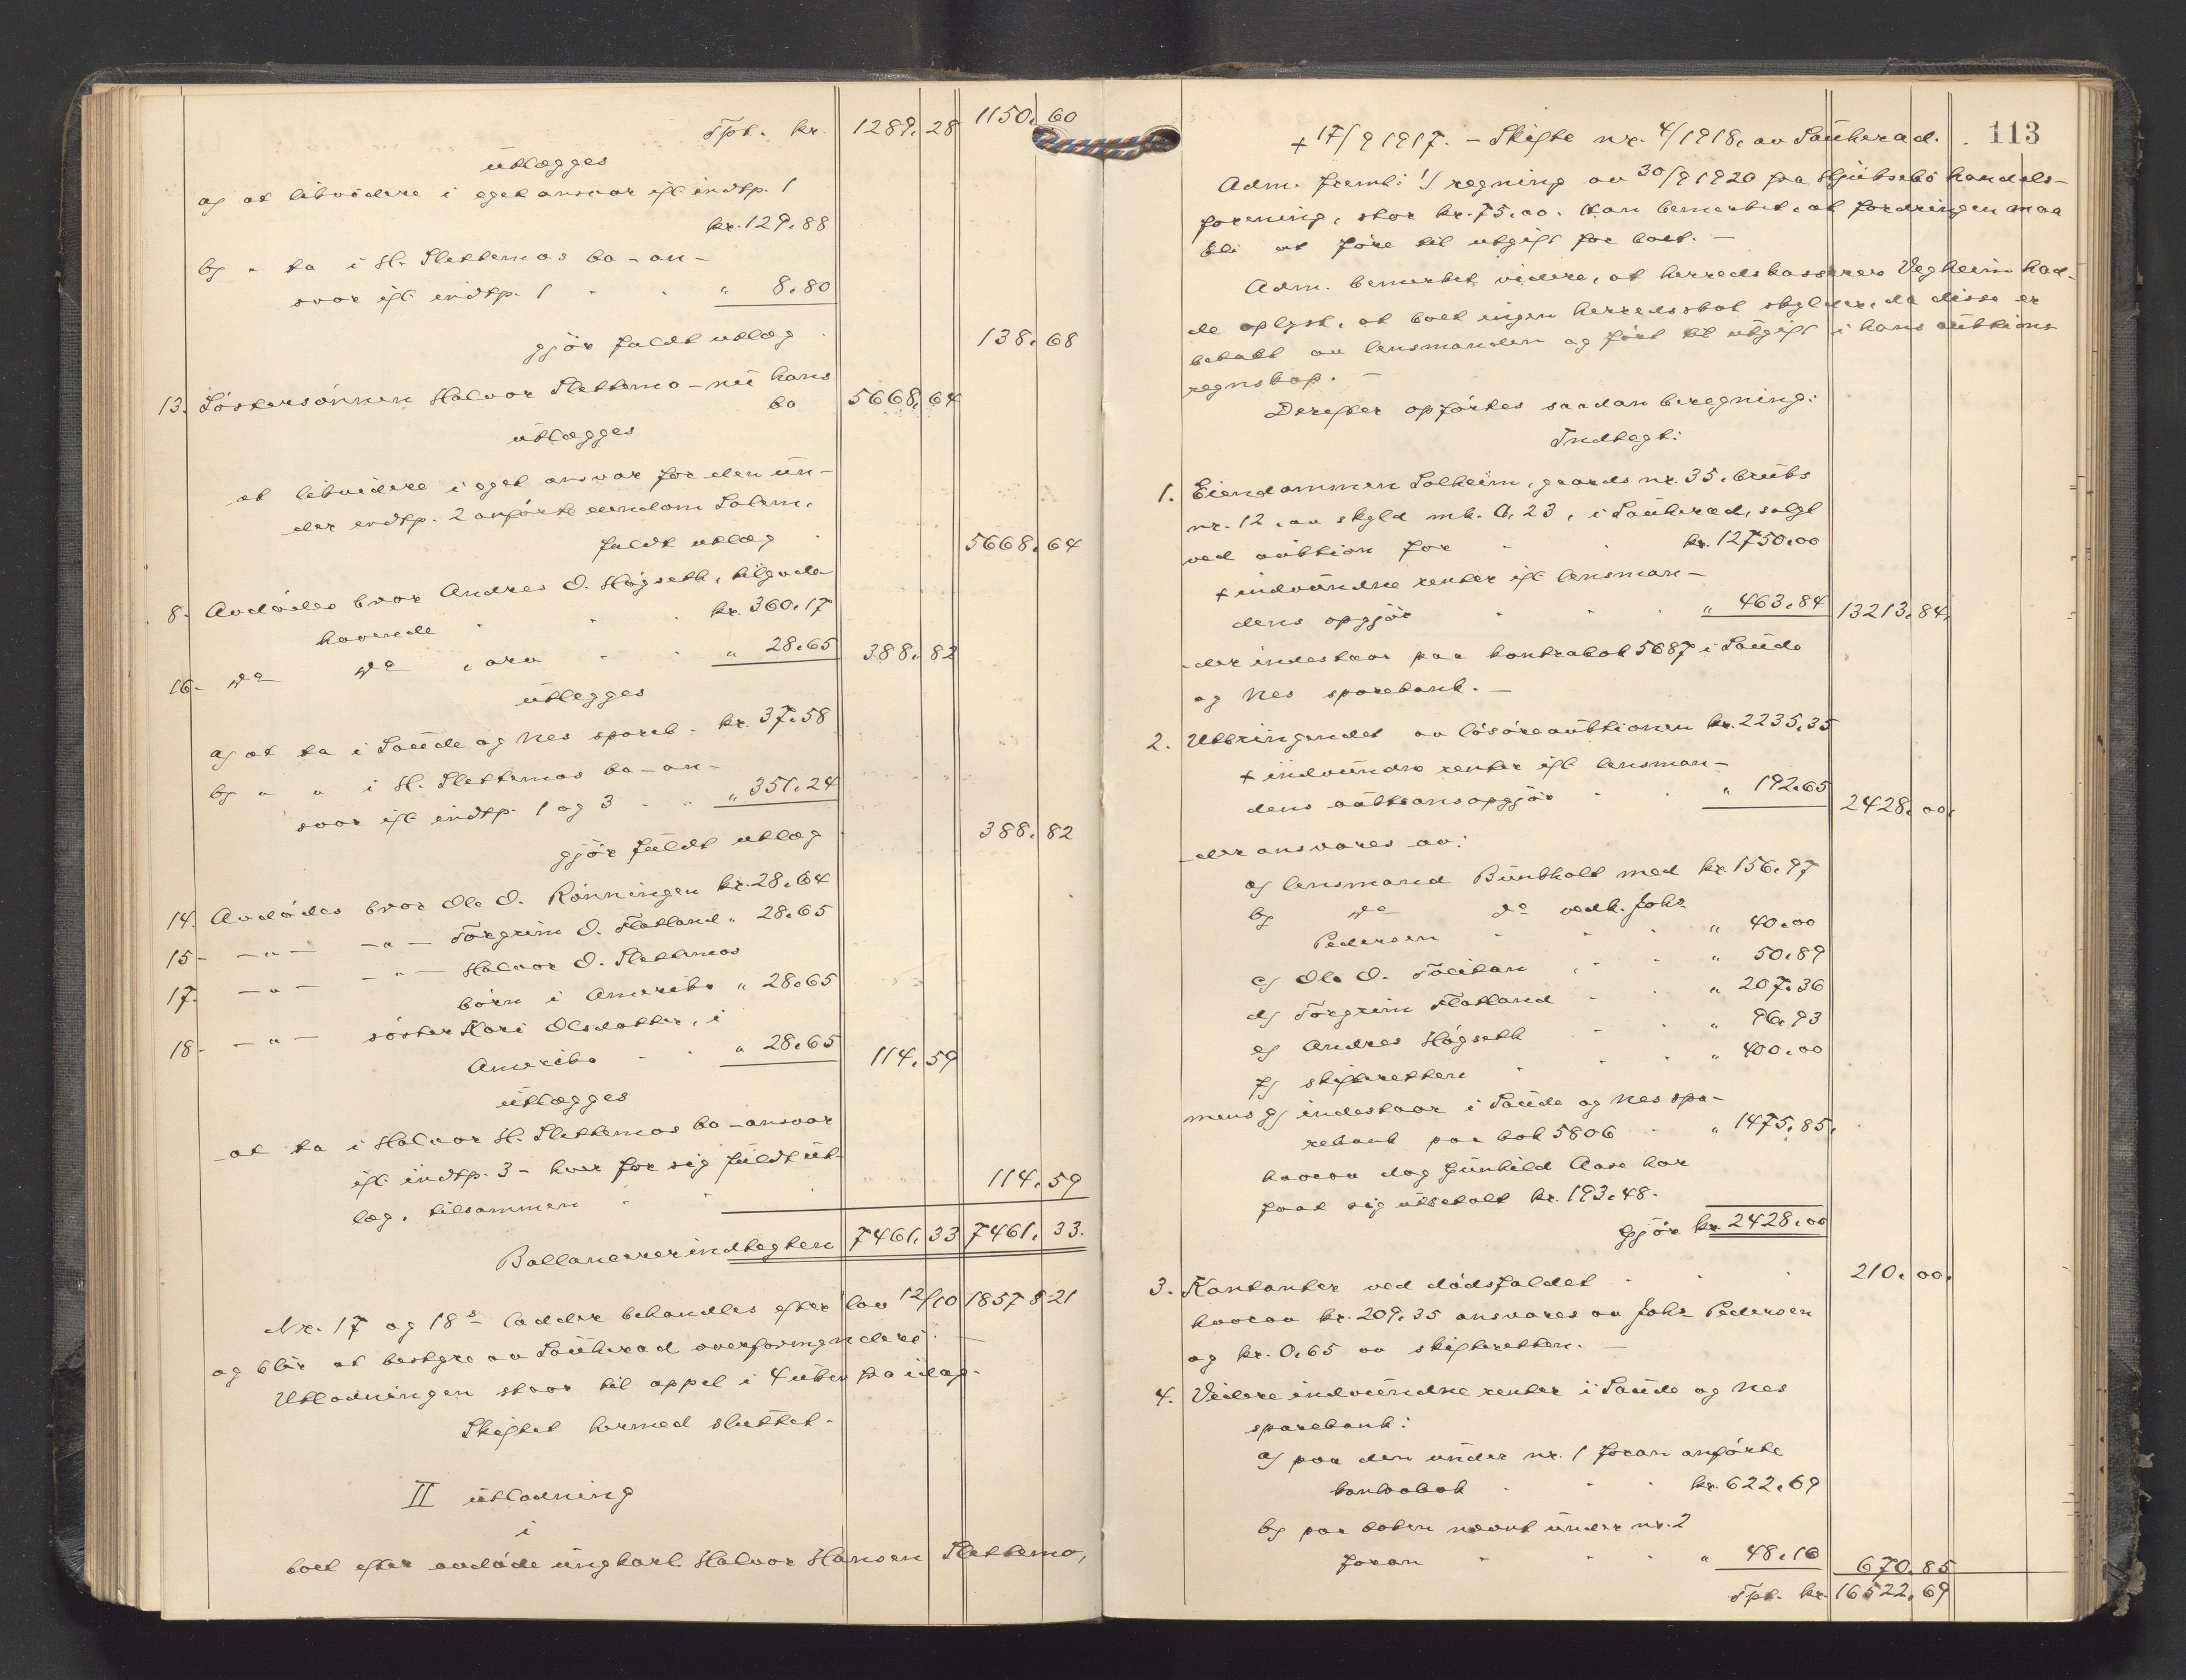 Tpt. kr. 1289.28 1150.60
utlægges
a) at likvidere i eget ansvar ifl. indtp. 1
kr. 129.88
b) " ta i H. Slettemos bo-an-
svar ifl. indtp. 1 " 8.80
gjör fuldt utlæg 138.68
13. Söstersönnen Halvor Slettemo - nu hans
bo 5668.64
utlægges
at likvidere i eget ansvar for den un-
der indtp. 2 anförte eiendom Solem.
fuldt utlæg 5668.64
8. Avdödes bror Andres O. Högseth, tilgode-
havende kr. 360.17
16- do do , arv " 28.65 388.82
utlegges
a) at ta i Saude og Nes spareb. kr. 37.58
b) " " i H. Slettemos bo-an-
svar ifl. indtp. 1 og 3 " 351.24
gjör fuldt utlæg 388.82
14. Avdödes bror Ole O. Rönningen kr. 28.64
15- -"- -"- Torgrim O. Flatland " 28.65
17. -"- -"- Halvor O. Slettemos
börn i Amerika " 28.65
18- -"- söster Kari Olsdatter, i
Amerika " 28.65 114.59
utlægges
at ta i Halvor H. Slettemos bo-ansvar
ifl. indtp. 3 - hver for sig fuldt ut-
læg, tilsammen 114.59
Ballancerer indtegten 7461.33 7461.33.
Nr. 17 og 18s lodder behandles efter lov 12/10 1857 § 21
og blir at bestyre av Sauherad overformynderi. -
Utlodningen staar til appel i 4 uker fra idag.
Skiftet hermed sluttet.
II utlodning
i
boet efter avdöde ungkarl Halvor Hansen Slettemo,
113
+ 17/9 1917. - Skifte nr. 4/1918, av Sauherad.
Adm. freml: 1) regning av 30/9 1920 fra Hjuksebö handels-
forening, stor kr. 75.00. Han bemerket, at fordringen maa
bli at före til utgift for boet. -
Adm. bemerket videre, at herredskasserer Vegheim had-
de oplyst, at boet ingen herredsskat skylder, da disse er
betalt av lensmanden og fört til utgift i hans auktions-
regnskap. -
Derefter opförtes saadan beregning:
Indtegt:
1. Eiendommen Solheim, gaards nr. 35, bruks
nr. 12, av skyld mk. 0,23, i Sauherad, solgt
ved auktion for kr. 12750.00
+ indvundne renter ifl. lensman-
dens opgjör " 463.84 13213.84.
der indestaar paa kontrabok 5687 i Saude
og Nes sparebank. -
2. Utbringendet av lösöreauktionen kr. 2235.35
+ indvundne renter ifl. lensman-
dens auktionsopgjör " 192.65 2428.00.
der ansvares av:
a) lensmand Bunkholt med kr. 156.97
b) do do vedk. Johs
Pedersen " 40.00
c) Ole O. " 50.89
d) Torgrim Flatland " 207.36
e) Andres Högseth " 96.93
f) skifteretten " 400.00
mens g) indestaar i Saude og Nes spa-
rebank paa bok 5806 " 1475.85.
hvorav dog Gunhild Aase har
faat sig utbetalt kr. 193.48.
Gjör kr. 2428.00
3. Kontanter ved dödsfaldet 210.00.
hvorav kr. 209.35 ansvares av Johs Pedersen
og kr. 0.65 av skifteretten. -
4. Videre indvundne renter i Saude og Nes
sparebank:
a) paa den under nr. 1 foran anförte
kontrabok kr. 622.69
b) paa boken nævnt under nr. 2
foran " 48.16 670.85
Tpt. kr. 16522.69